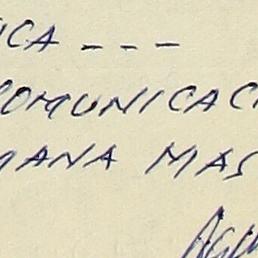 ICA ---
COMUNICAC
MANA MAS